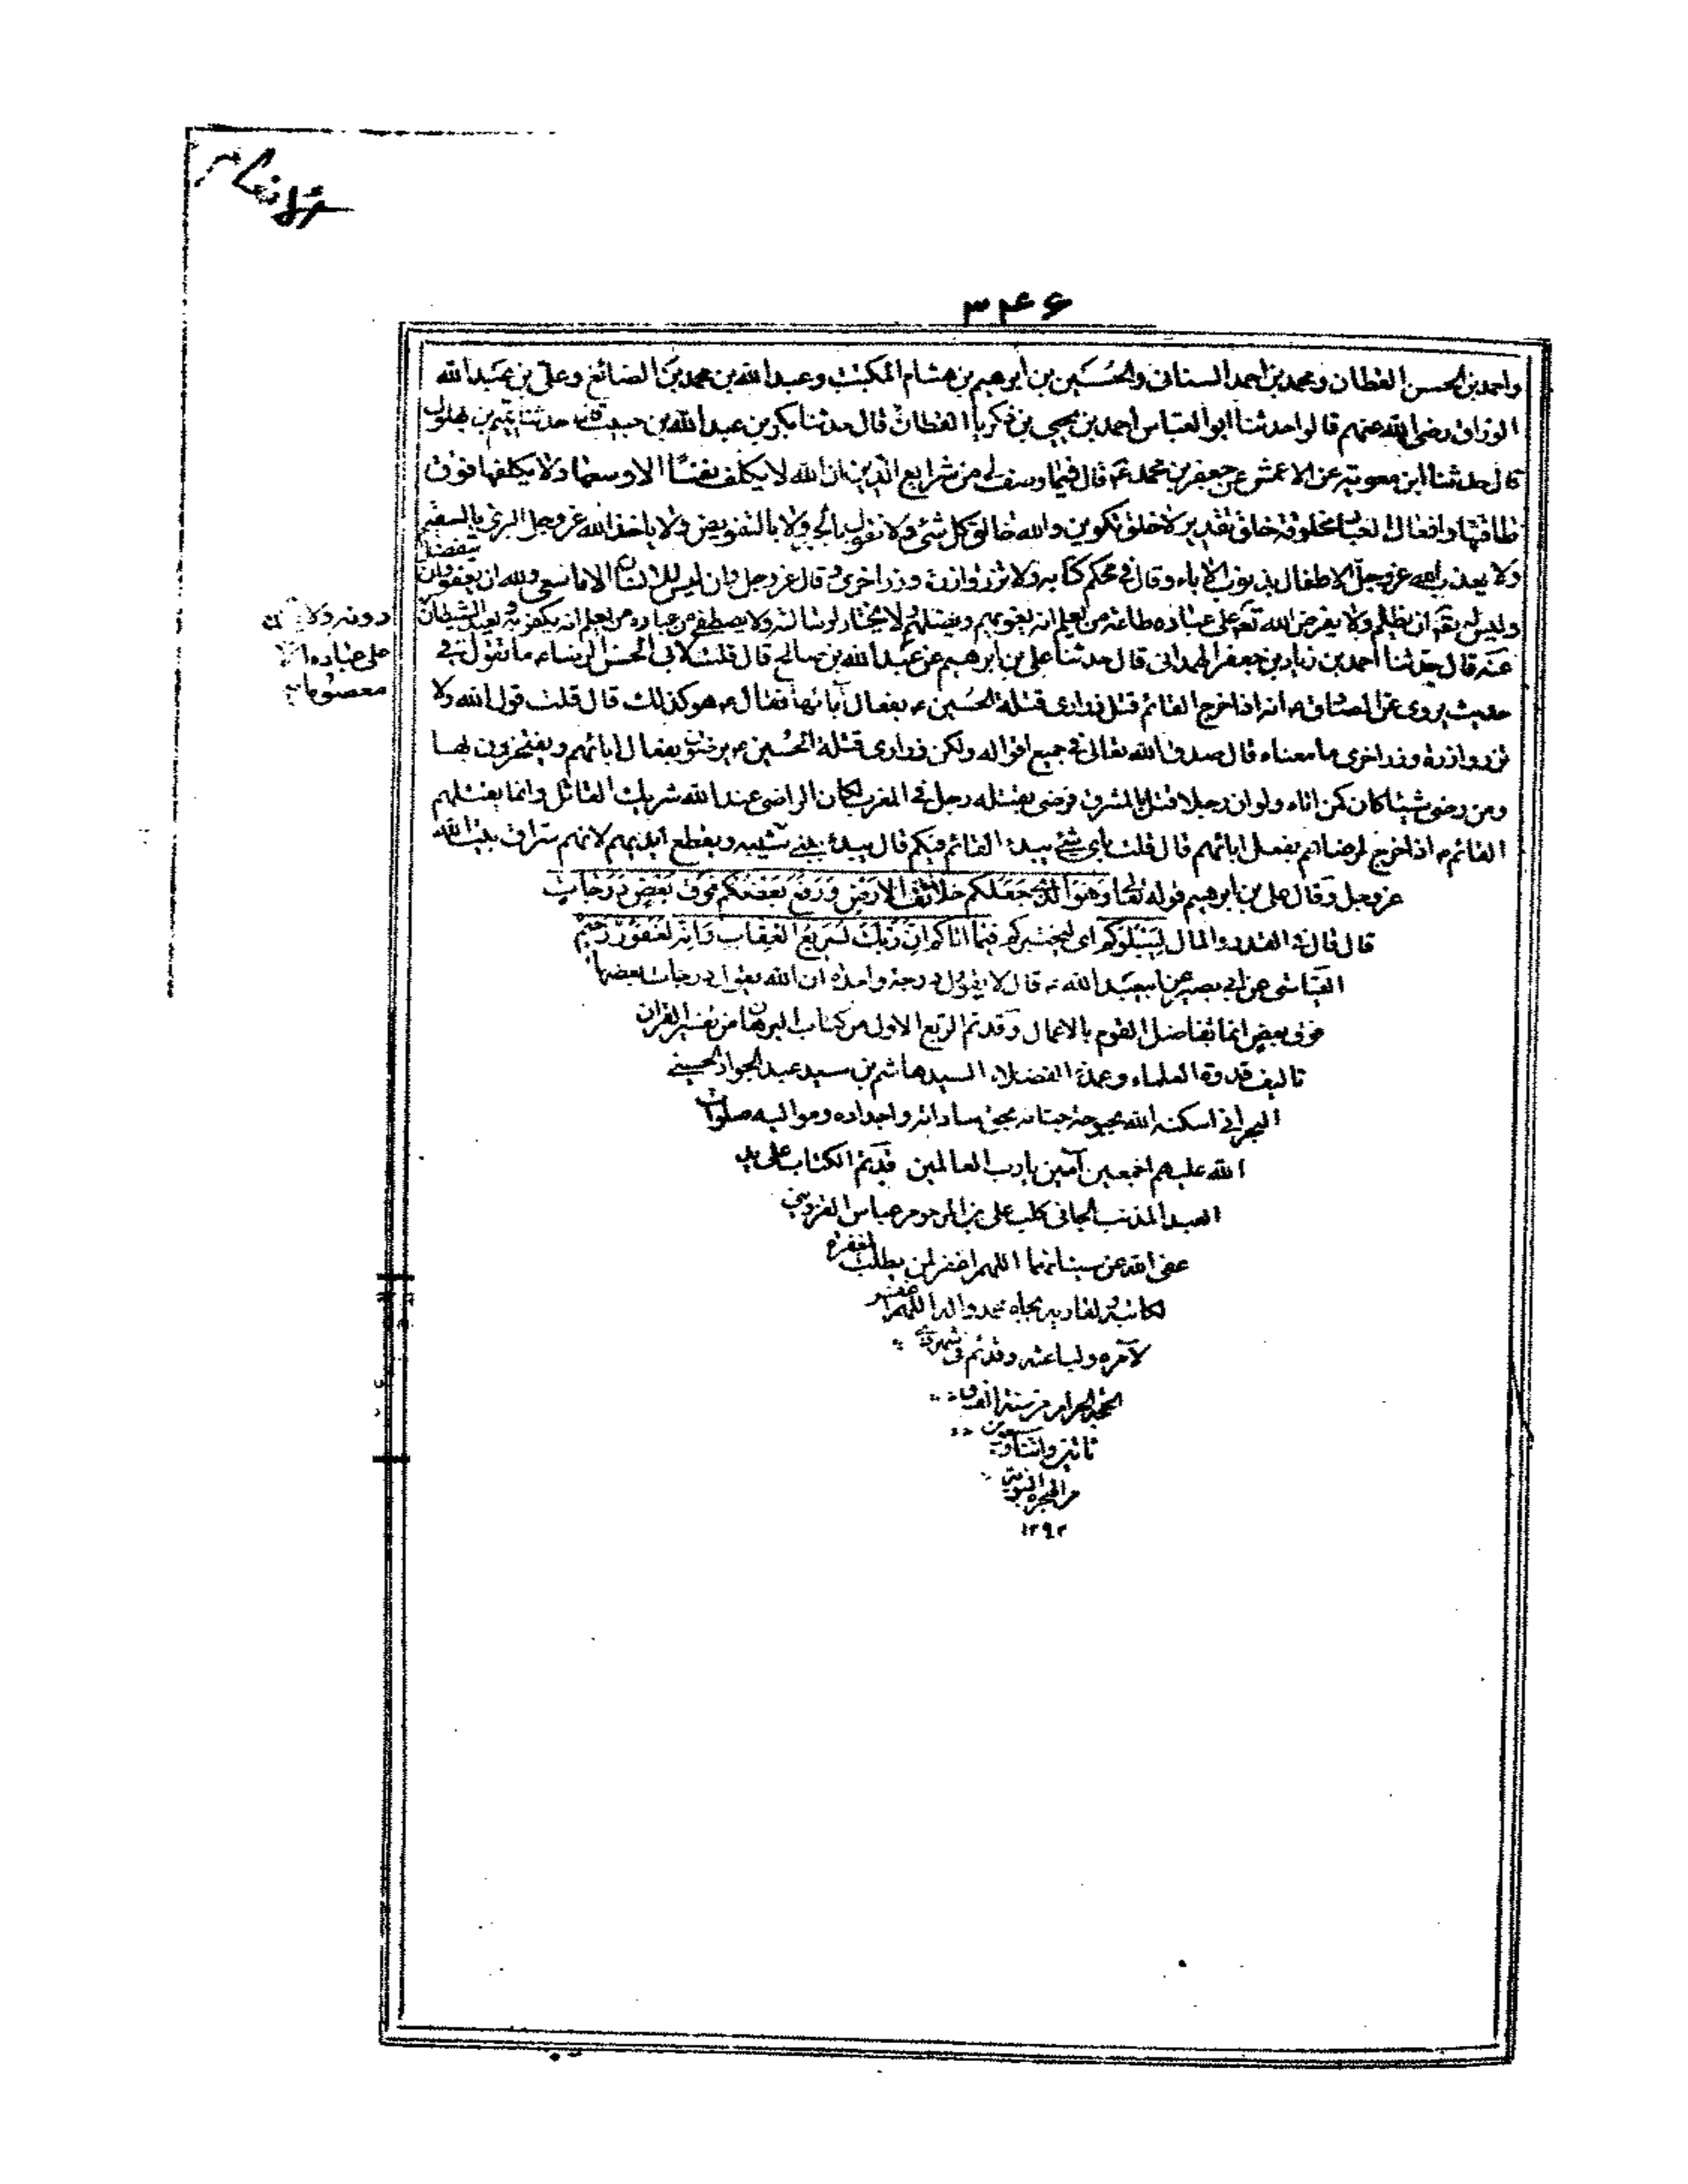 ۳۴۶
واحمد بن الحسن القطان ومحمد بن احمد السنانی والحسین بن ابرهیم بن هشام المکتب وعبد الله بن محمد بن الصائغ وعلی بن عبد الله
الوراق رضی الله عنهم قالوا حدثنا ابو العباس احمد بن یحیی بن زکریا القطان قال حدثنا بکر بن عبد الله بن حبیب قال حدثنا تمیم بن بهلول
قال حدثنا ابن معویة عن الاعمش عن جعفر بن محمد ع قال فیما وصف لی من شرایع الدین ان الله لا یکلف نفسًا الا وسعها ولا یکلفها فوق
طاقتها وافعال العباد مخلوقة خلق تقدیر لا خلق تکوین والله خالق کل شئ ولا نقول بالجبر ولا بالتفویض ولا یاخذ الله عز وجل البری بالسقیم
ولا یعذب الله عز وجل الاطفال بذنوب الاباء وقال فی محکم کتابه ولا تزر وازرة وزر اخری وقال عز وجل وان لیس للانسان الا ما سعی ولله ان یعفو وان یتفضل
ولیس له تع ان یظلم ولا یفرض الله تع علی عباده طاعة من یعلم انه یغویهم ویضلهم ولا یختار لرسالته ولا یصطفی من عباده من یعلم انه یکفر به ویعبد الشیطان
دونه ولا
علی عباده الا
معصوما
عنه قال حدثنا احمد بن زیاد بن جعفر الهمدانی قال حدثنا علی بن ابرهیم عن عبد الله بن صالح قال قلت لابی الحسن الرضا ء ما تقول فی
حدیث یروی عن الصادق ء انه اذا خرج القائم قتل ذراری قتلة الحسین ء بفعال آبائها فقال ء هو کذلک قال قلت قول الله ولا
تزر وازرة وزر اخری ما معناه قال صدق الله تعالی فی جمیع اقواله ولکن ذراری قتلة الحسین ء یرضون بفعال ابائهم ویفتخرون بها
ومن رضی شیئا کان کمن اتاه ولو ان رجلا قتل بالمشرق فرضی بقتله رجل فی المغرب لکان الراضی عند الله شریک القاتل وانما یقتلهم
القائم ء اذا خرج لرضاهم بفعل ابائهم قال قلت بای شئ یبدء القائم فیکم قال یبدء ببنی شیبه ویقطع ایدیهم لانهم سراق بیت الله
عز وجل وقال علی بن ابرهیم قوله تعالی وهو الذی جعلکم خلائف الارض ورفع بعضکم فوق بعض درجات
قال قال فی القدر والمال لیبلوکم ای لیختبرکم فیما اتاکم ان ربک لسریع العقاب وانه لغفور رحیم
العیاشی عن ابی بصیر عن ابیعبد الله ء قال لا یقول درجة واحدة ان الله یقول درجات بعضها
فوق بعض انما تفاضل القوم بالاعمال وقد تم الربع الاول من کتاب البرهان من تفسیر القران
تالیف قدوة العلماء وعمدة الفضلاء السید هاشم بن سید عبد الجواد الحسینی
البحرانی اسکنه الله بحبوحة جنانه بحق ساداته واجداده وموالیه صلوات
الله علیهم اجمعین آمین یا رب العالمین قد تم الکتاب علی ید
العبد المذنب الجانی کلب علی بن المرحوم عباس القزوینی
عفی الله عن سیئاتهما اللهم اغفر لمن یطلب المغفرة
لکاتبه ولقاریه بجاه محمد واله اللهم اغفر
لآمره ولباعثه وقد تم فی شهر ذی
الحجة الحرام من سنة الف و
ثاثین واثنتا وتسعین
من الهجرة النبویة
۱۲۹۲